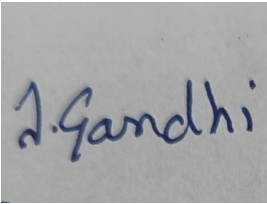 I. Gandhi